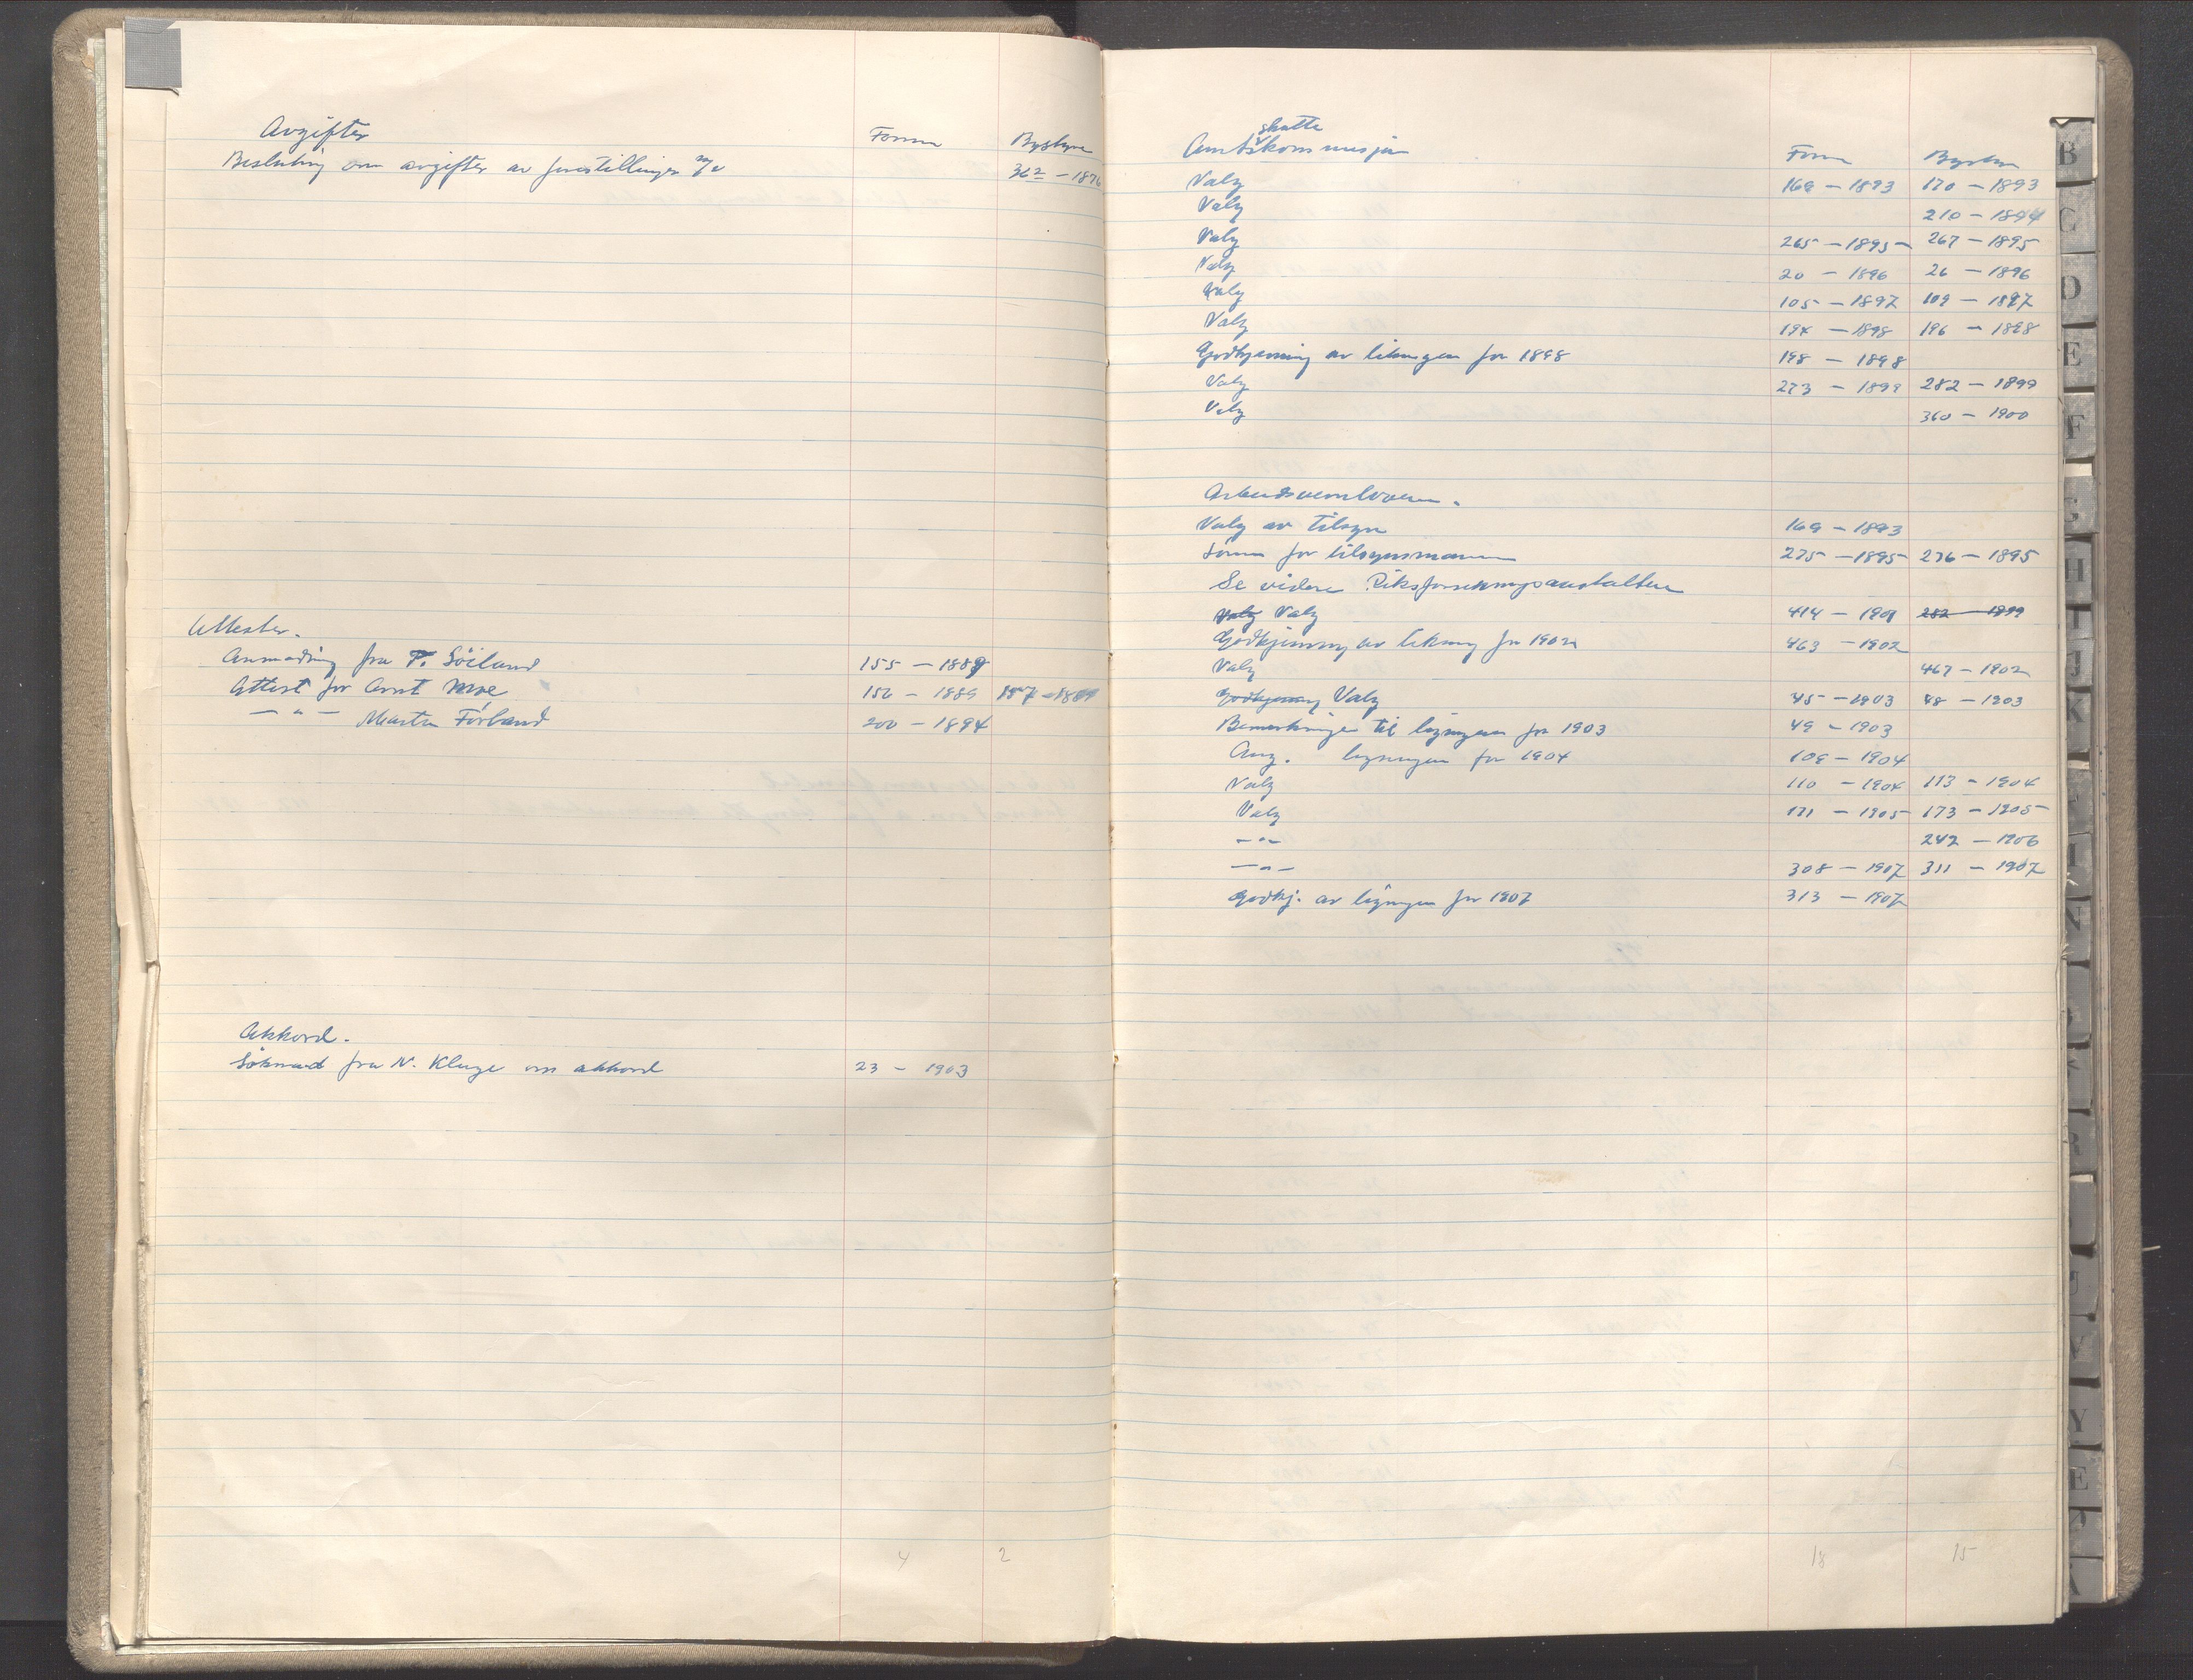 Avgifter Form Bystyre
Beslutning om avgifter av forestillinger m/v 362 - 1876
Attester.
Anmodning fra T. Söiland 155 - 1889
Attest for Arnt Moe 156 - 1889 157 - 1889
— " — Martin Förland 200 - 1894
Akkord.
Söknad fra N. Kluge om akkord 23 - 1903
4 2
skatte
Amtskommisjon Form Bystyre
Valg 169 - 1893 170 - 1893
Valg 210 - 1894
Valg 265 - 1895 267 - 1895
Valg 20 - 1896 26 - 1896
Valg 105 - 1897 109 - 1897
Valg 194 - 1898 196 - 1898
Godkjenning av likningen for 1898 198 - 1898
Valg 273 - 1899 282 - 1899
Valg 360 - 1900
Arbeidsvernloven.
Valg av tilsyn 169 - 1893
Lönn for tilsynsmannen 275 - 1895 276 - 1895
Se videre Riksforsikringsanstalten
Valg Valg 414 - 1901 282 - 1899
Godkjenning av likning for 1902 463 - 1902
Valg 467 - 1902
Godkjenning Valg 45 - 1903 48 - 1903
Bemerkninger til ligningen for 1903 49 - 1903
Ang. ligningen for 1904 109 - 1904
Valg 110 - 1904 113 - 1904
Valg 171 - 1905 173 - 1905
— " — 242 - 1906
— " — 308 - 1907 311 - 1907
Godkj. av ligningen for 1907 313 - 1907
18 15
B
C
D
E
F
G
H
I
J
K
N
R
V
Y